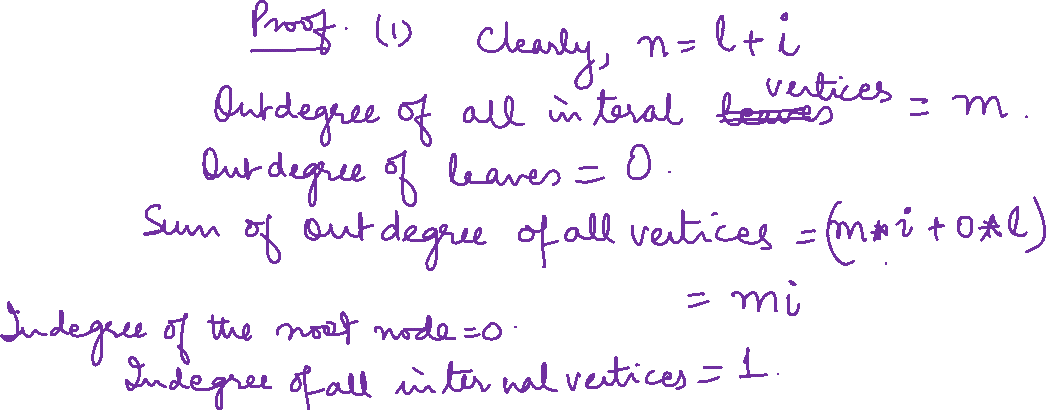 Proof. (1) Clearly, n = l + i
Outdegree of all interal vertices = m.
Outdegree of leaves = 0.
Sum of outdegree of all vertices = (m*i + 0*l)
= mi
Indegree of the root node = 0.
Indegree of all internal vertices = 1.